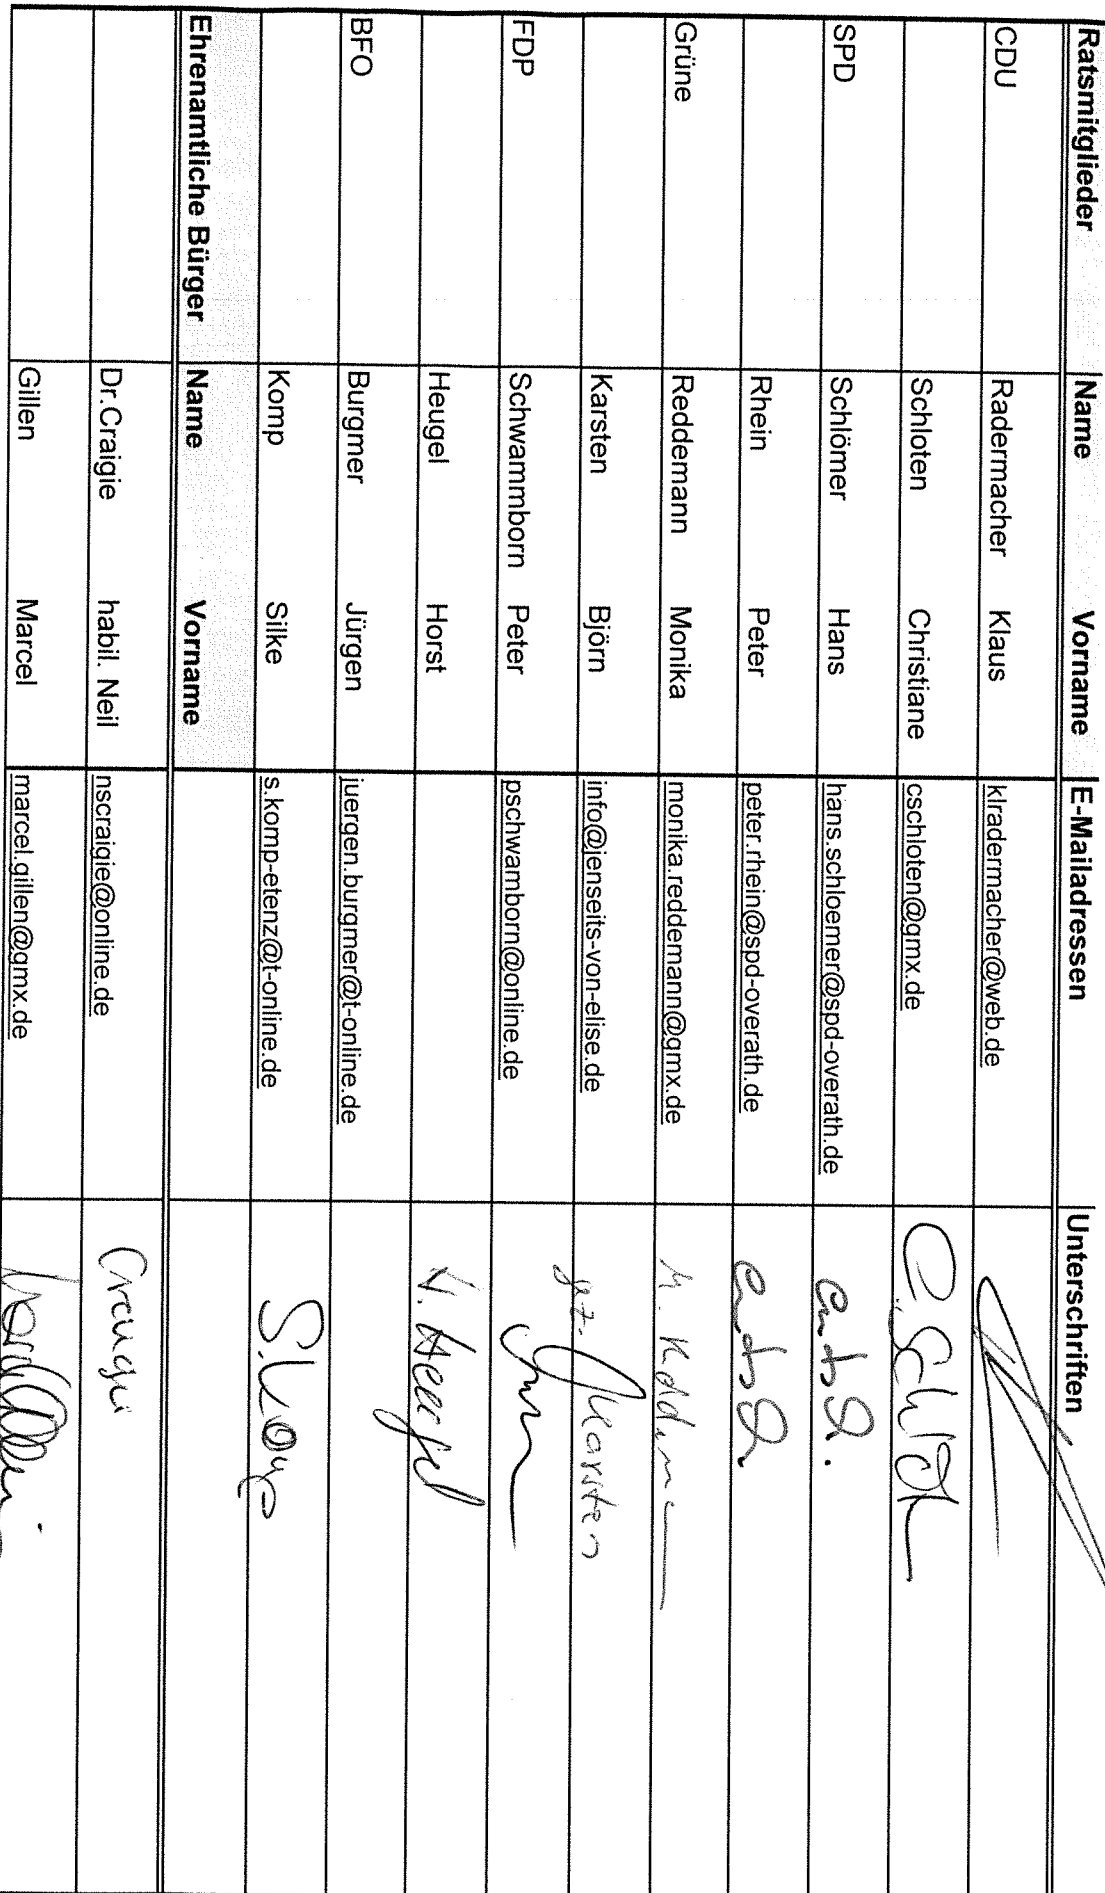 Ratsmitglieder Name Vorname E-Mailadressen Unterschriften
CDU Radermacher Klaus klradermacher@web.de
Schloten Christiane cschloten@gmx.de
SPD Schlömer Hans hans.schloemer@spd-overath.de
Rhein Peter peter.rhein@spd-overath.de
Grüne Reddemann Monika monika.reddemann@gmx.de
Karsten Björn info@jenseits-von-elise.de gez. Karsten
FDP Schwammborn Peter pschwamborn@online.de
Heugel Horst
BFO Burgmer Jürgen juergen.burgmer@t-online.de
Komp Silke s.komp-etenz@t-online.de
Ehrenamtliche Bürger Name Vorname
Dr.Craigie habil. Neil nscraigie@online.de
Gillen Marcel marcel.gillen@gmx.de